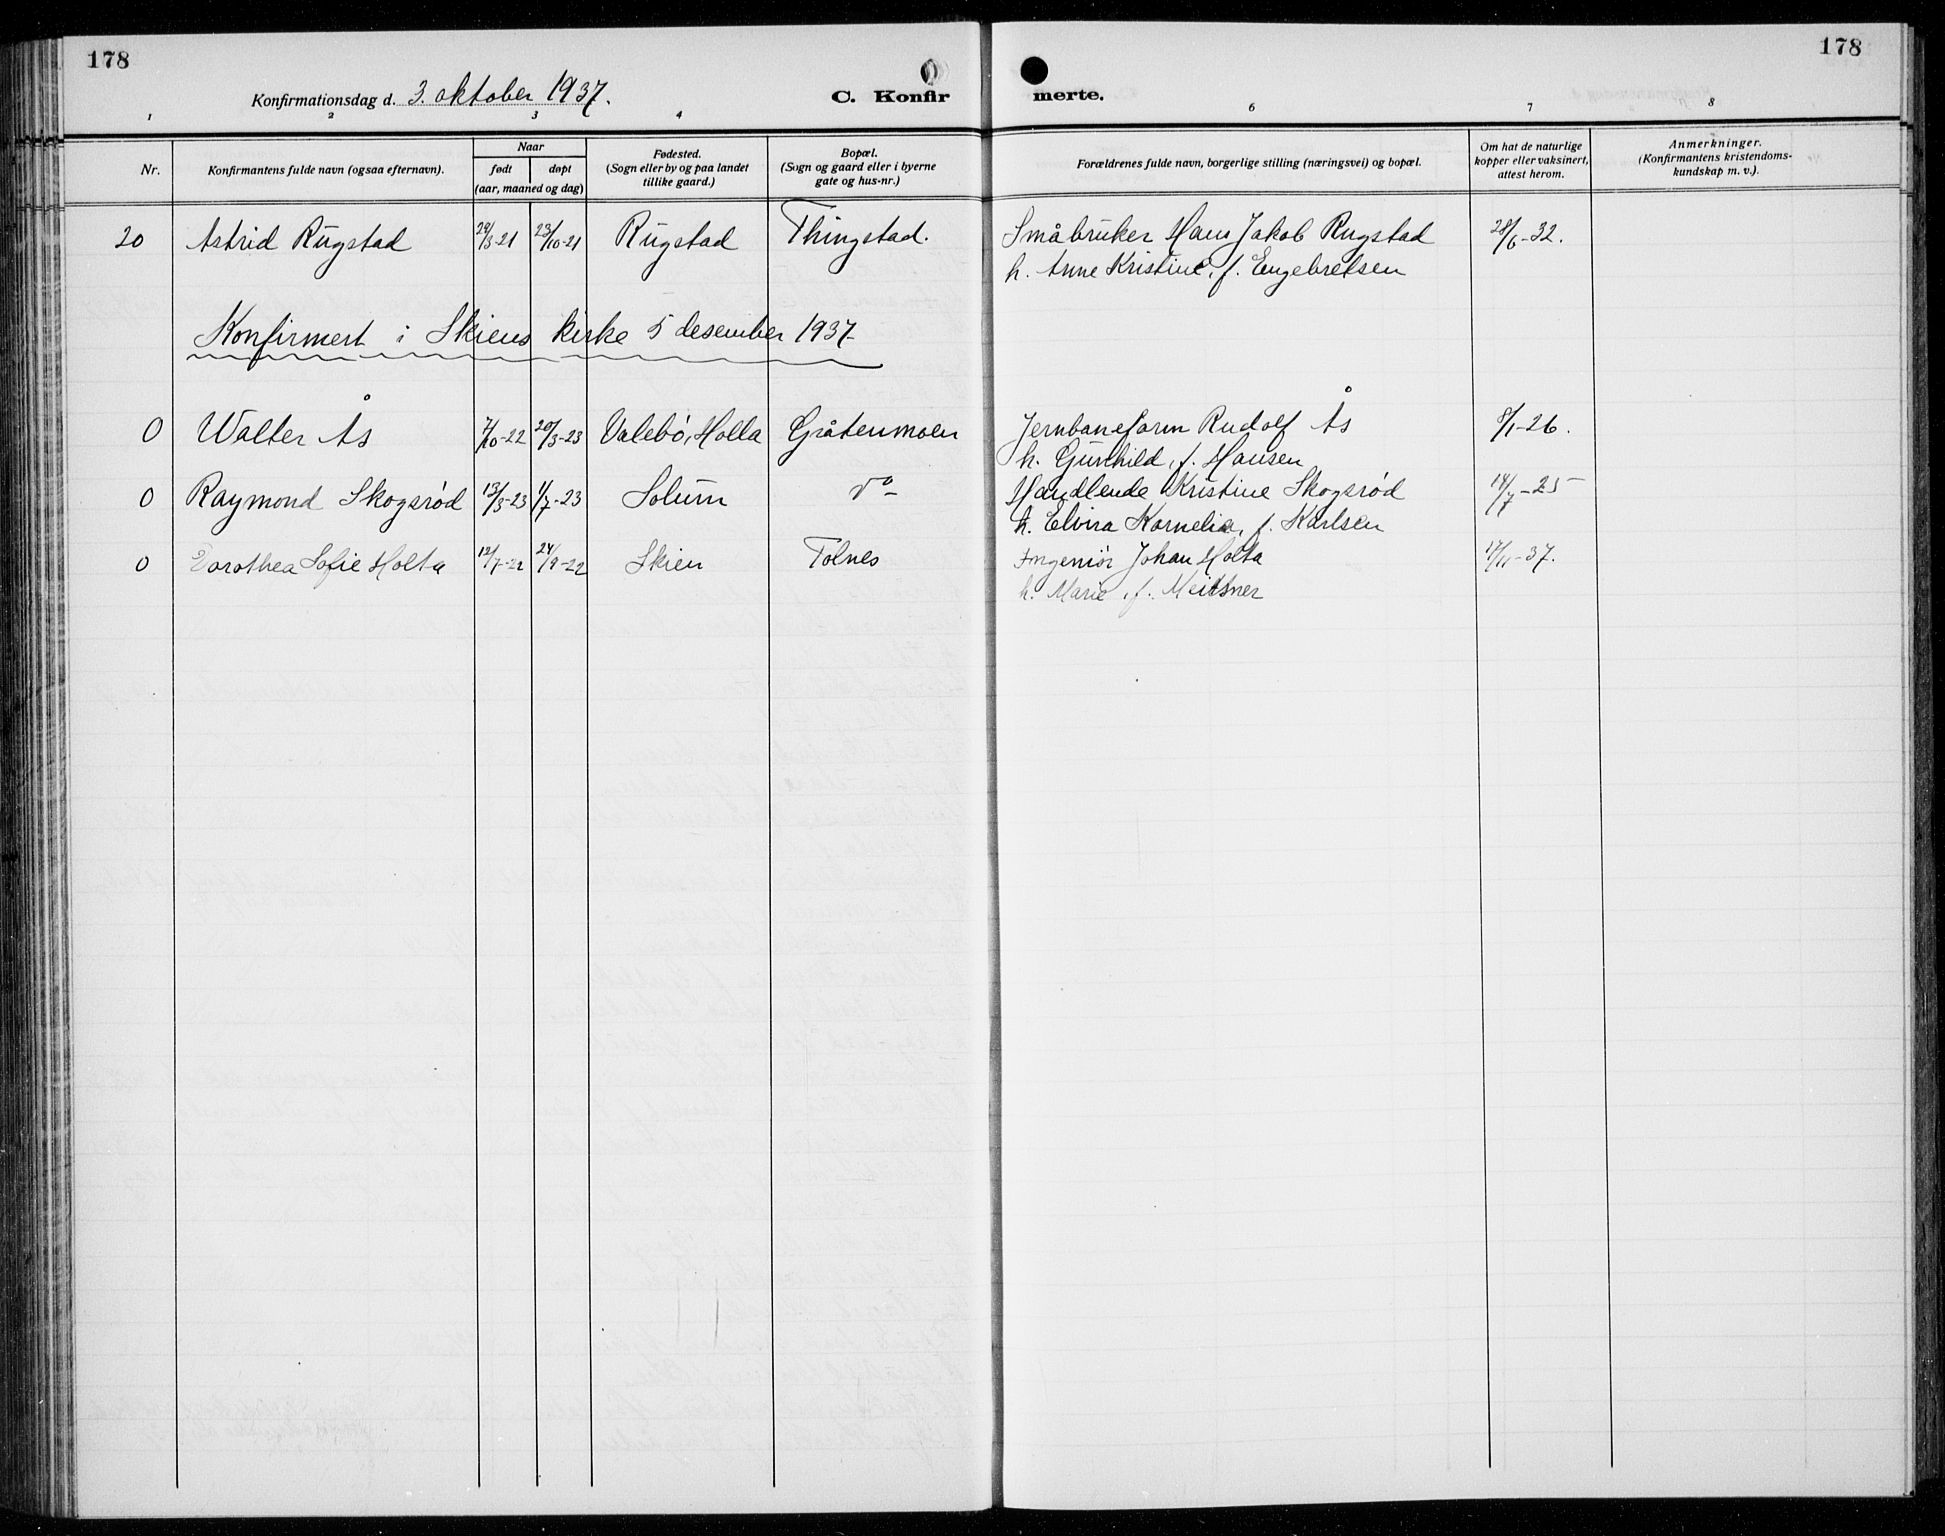 178
178
Konfirmationsdag d. 3. oktober 1937.
C. Konfir
merte.
1 2 3 4 6 7 8
Nr.
Konfirmantens fulde navn (ogsaa efternavn).
Naar
født døpt
(aar, maaned og dag)
Fødested.
(Sogn eller by og paa landet
tillike gaard.)
Bopæl.
(Sogn og gaard eller i byerne
gate og hus-nr.)
Forældrenes fulde navn, borgerlige stilling (næringsvei) og bopæl.
Om hat de naturlige
kopper eller vaksinert,
attest herom.
Anmerkninger.
(Konfirmantens kristendoms-
kundskap m. v.).
20 Astrid Rugstad 29/3-21 23/10-21 Rugstad Thingstad. Småbruker Hans Jakob Rugstad 28/6-32.
h. Anne Kristine, f. Engebretsen
Konfirmert i Skiens kirke 5 desember 1937
0 Walter Ås 7/10-22 20/3-23 Valebø, Holla Gråtenmoen Jernbaneform Rudolf Ås 8/1-26.
h. Gunhild, f. Hansen
0 Raymond Skogsrød 13/3-23 1/7-23 Solum do- Handlende Kristine Skogsrød 14/7-25
h. Elvira Kornelia, f. Karlsen
0 Dorothea Sofie Holta 12/7-22 24/9-22 Skien Tolnes Ingeniør Johan Holta 17/11-37.
h. Marie, f. Meitsner